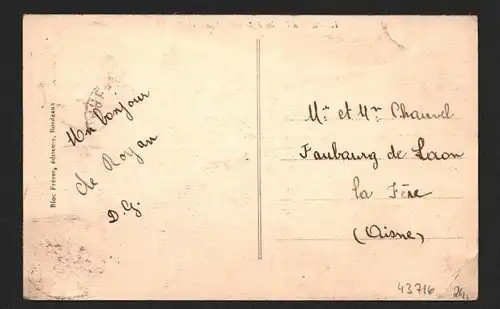 Bloc Frères, éditeurs, Bordeaux
Un bonjour
de Royan
D.G.
Mr et Mme Chauvel
Faubourg de Laon
la Fère
(Aisne)
43716